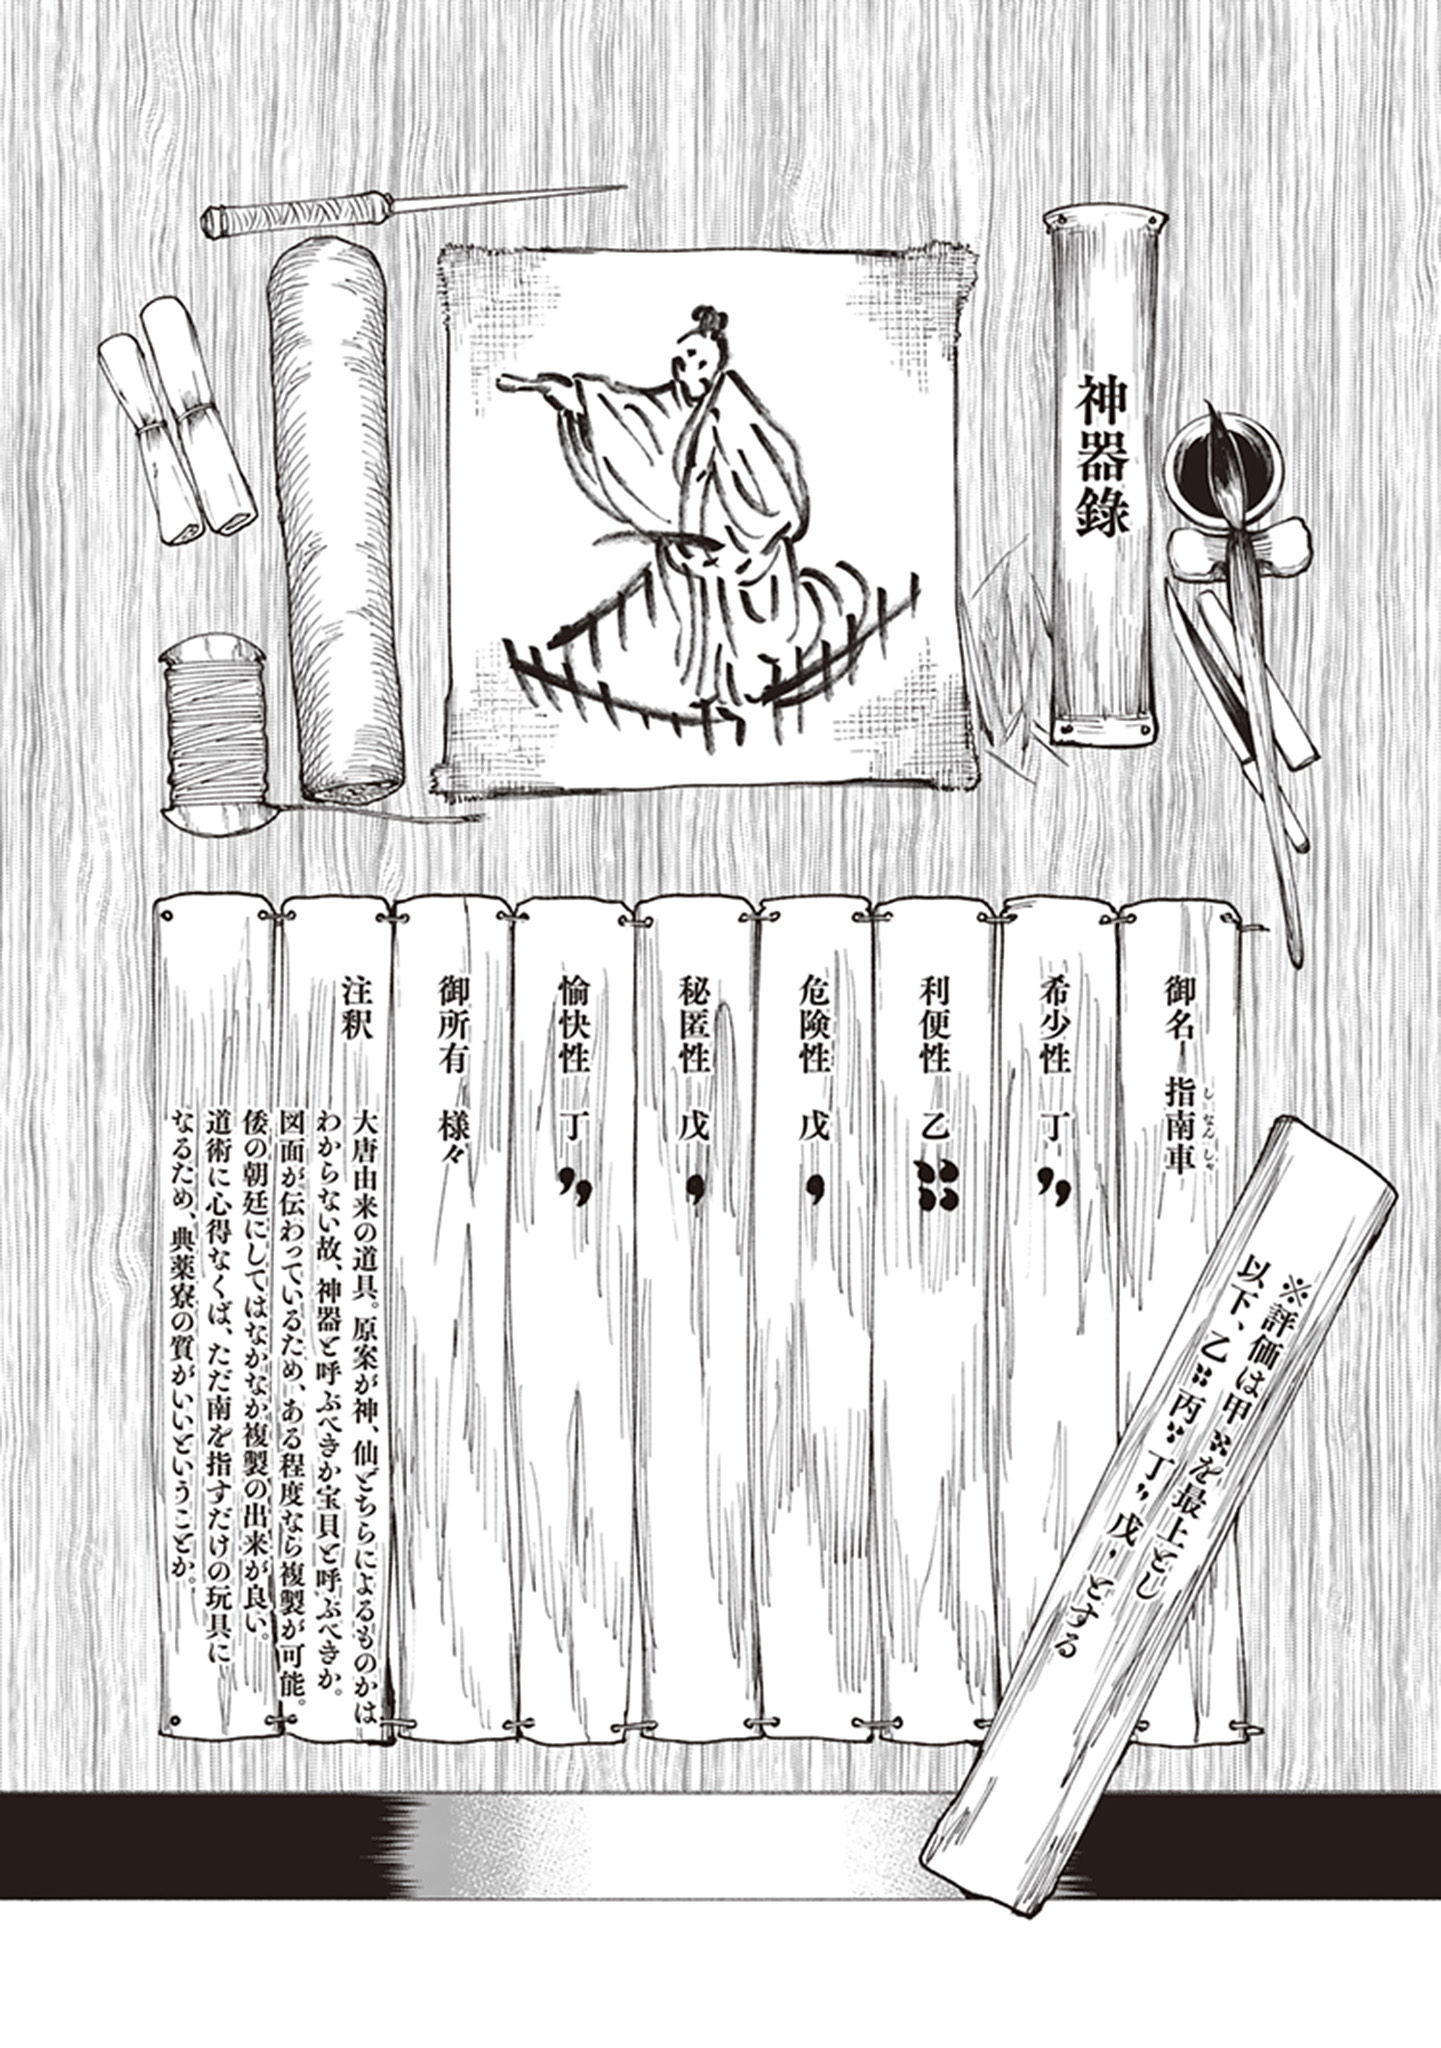 神器錄
御名－指南車
しなんしゃ
希少性　丁
利便性　乙
危険性　戊
秘匿性　戊
愉快性　丁
御所有　様々
注釈
大唐由来の道具。原案が神、仙どちらによるものかは
わからない故、神器と呼ぶべきか宝貝と呼ぶべきか。
図面が伝わっているため、ある程度なら複製が可能。
倭の朝廷にしてはなかなか複製の出来が良い。
道術に心得なくば、ただ南を指すだけの玩具に
なるため、典薬寮の質がいいということか。
※評価は甲を最上とし
以下、乙 丙 丁 戊 とする